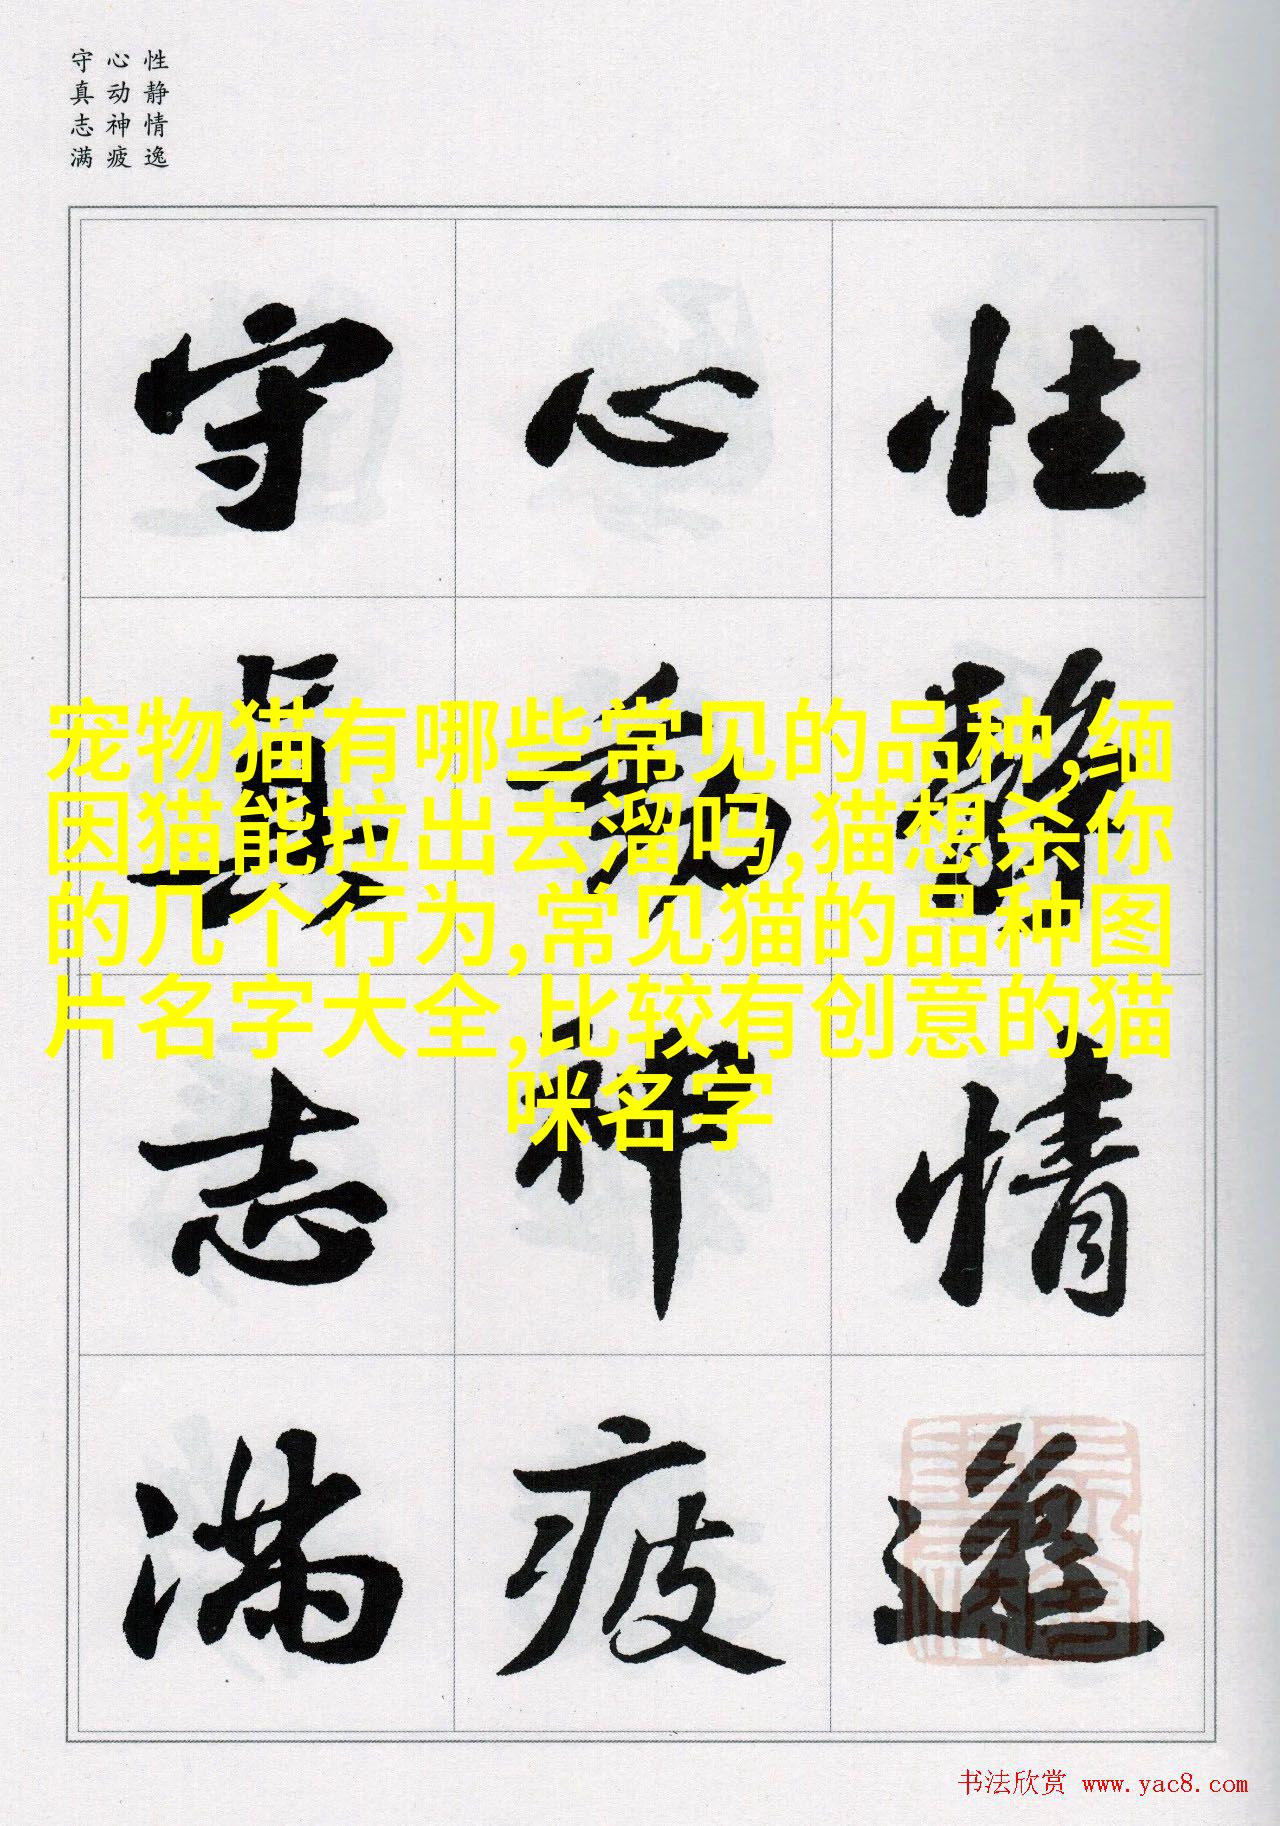 性静情逸
心动神疲
守真志满
性靜情逸
心動神疲
守真志满
宠物猫有哪些常见的品种,缅
因猫能拉出去溜吗,猫想杀你
的几个行为,常见猫的品种图
片名字大全,比较有创意的猫
咪名字
书法欣赏 www.yac8.com